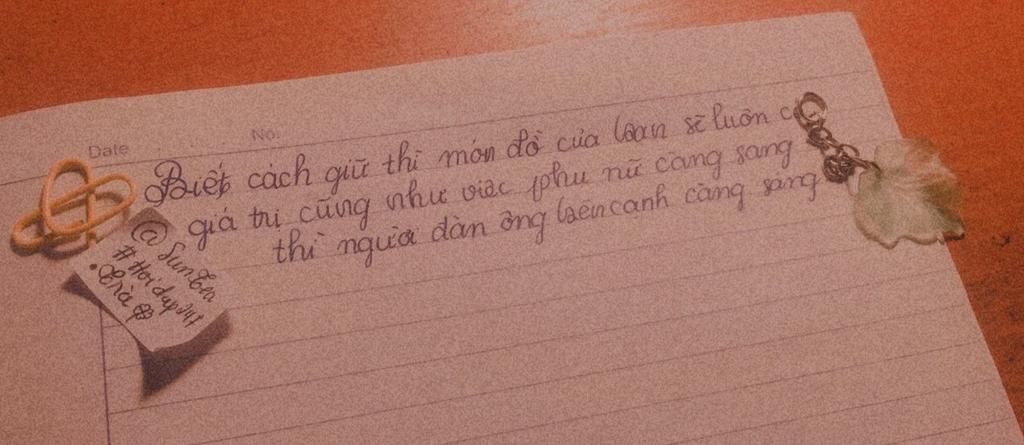 Date
No.
Biết cách giữ thì món đồ của bạn sẽ luôn có
giá trị cũng như việc phụ nữ càng sang
thì người đàn ông bên cạnh càng sáng
@ SunTea
# Hoidap247
• Trà